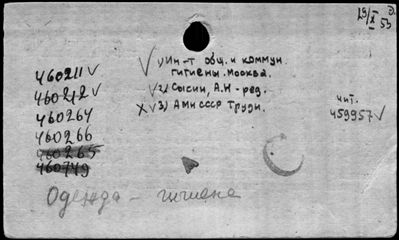 29/X 53
1) Ин-т общ. и коммун.
гигиены. Москва.
2) Сысин, А.Н - ред.
3) АМН СССР Труди.
460211
460212
460264
460266
460265
460749
чит.
459957
Одежда - гигиена